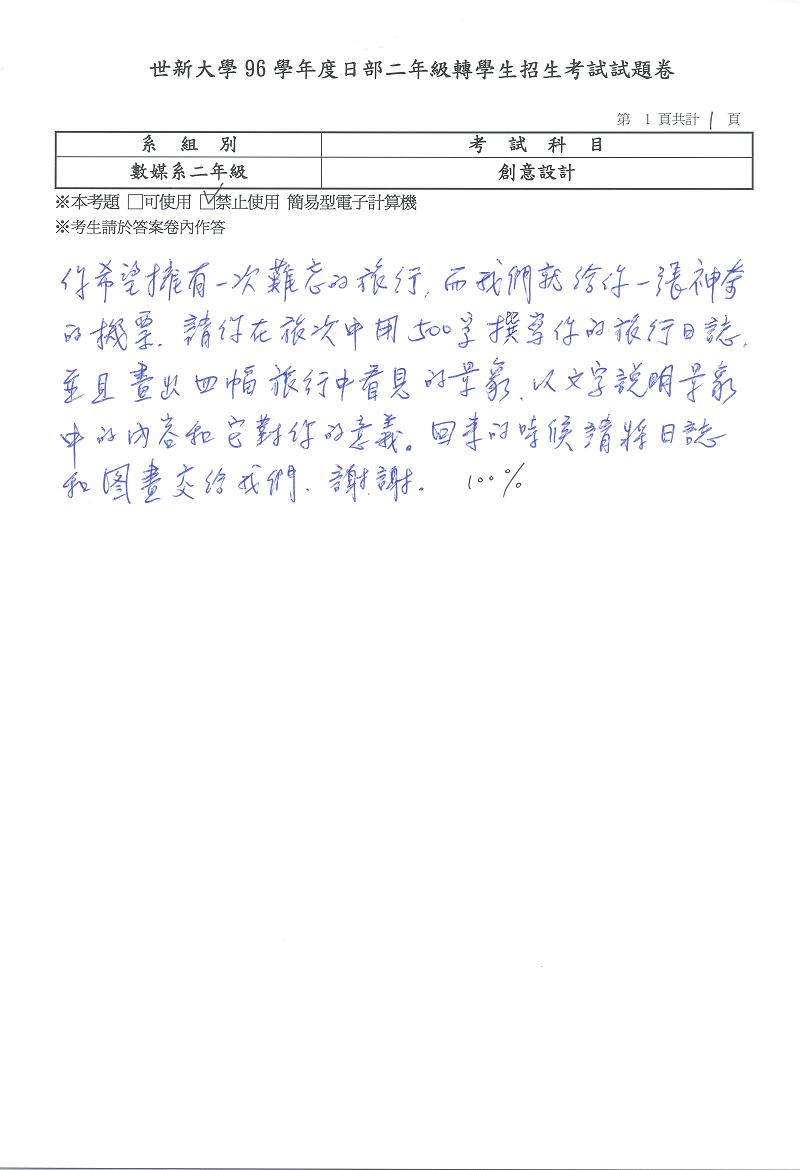 世新大學 96 學年度日部二年級轉學生招生考試試題卷
第 1 頁共計 1 頁
系組別 考試科目
數媒系二年級 創意設計
※本考題 □可使用 ☑禁止使用 簡易型電子計算機
※考生請於答案卷內作答
你希望擁有一次難忘的旅行,而我們就給你一張神奇
的機票.請你在旅次中用500字撰寫你的旅行日誌,
並且畫出四幅旅行中看見的景象,以文字說明景象
中的內容和它對你的意義。回來的時候請將日誌
和图畫交給我們.謝謝. 100%